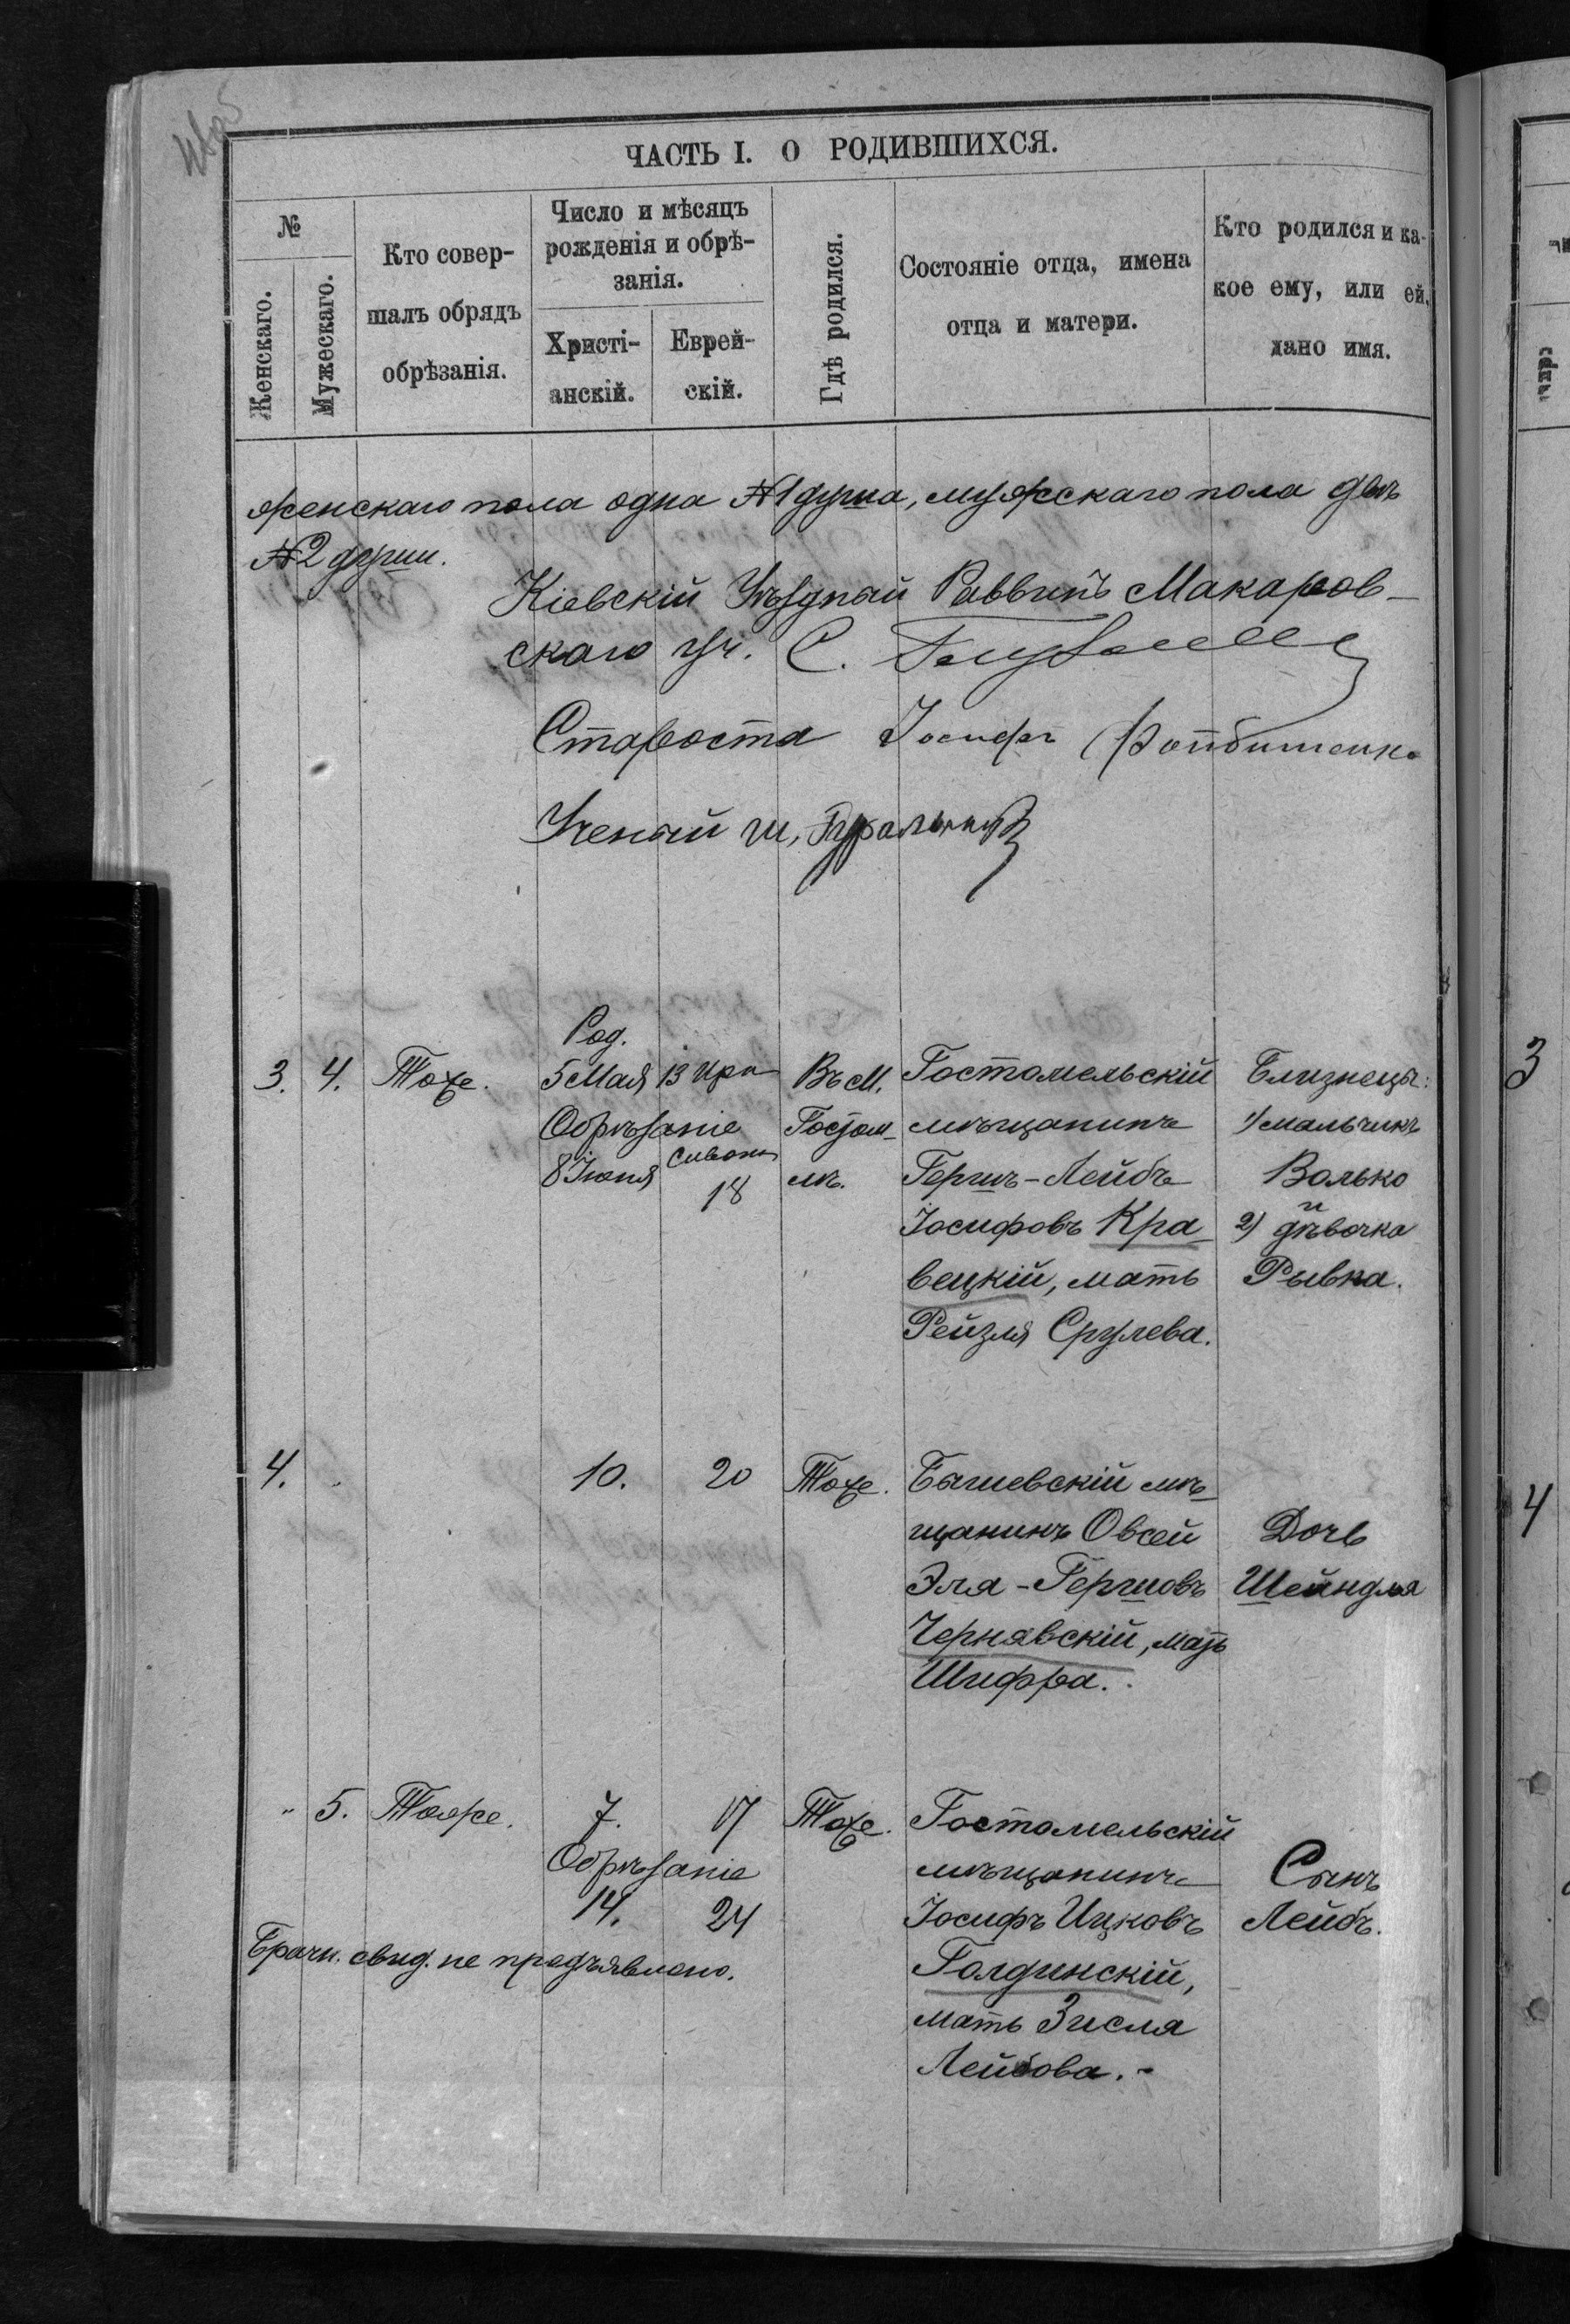 ЧАСТЬ I. О РОДИВШИХСЯ.
№
Женскаго.
Мужескаго.
Кто совер-
шалъ обрядъ
обрѣзанія.
Число и мѣсяцъ
рожденія и обрѣ-
занія.
Христі-
анскій.
Еврей-
скій.
Гдѣ родился.
Состояніе отца, имена
отца и матери.
Кто родился и ка-
кое ему, или ей,
дано имя.
женскаго пола одна №1 душа, мужскаго пола двѣ
№2 души.
Кіевскій Уѣздный Раввинъ Макаров-
скаго уч. С.
Староста Іосифъ
Ученый Ш.
3. 4. Тоже.
Род.
5 Мая 13 Ира
Обрѣзаніе
8 Іюня Сивона
18
Въ М.
Гостом-
лѣ.
Гостомельскій
мѣщанинъ
Гершъ-Лейбъ
Іосифовъ Кра-
вецкій, мать
Рейзля Срулева.
Близнецы:
1) мальчикъ
Волько
и
2) дѣвочка
Рывка.
4. 10. 20 Тоже.
Бышевскій мѣ-
щанинъ Овсей
Эля-Гершовъ
Чернявскій, мать
Шифра.
Дочь
Шейндля
" 5. Тоже. 7. 17 Тоже.
Обрѣзаніе
14. 24
Брачн. свид. не предъявлено.
Гостомельскій
мѣщанинъ
Іосифъ Ицковъ
Голдинскій,
мать Зисля
Лейбова.
Сынъ
Лейбъ.
3
4